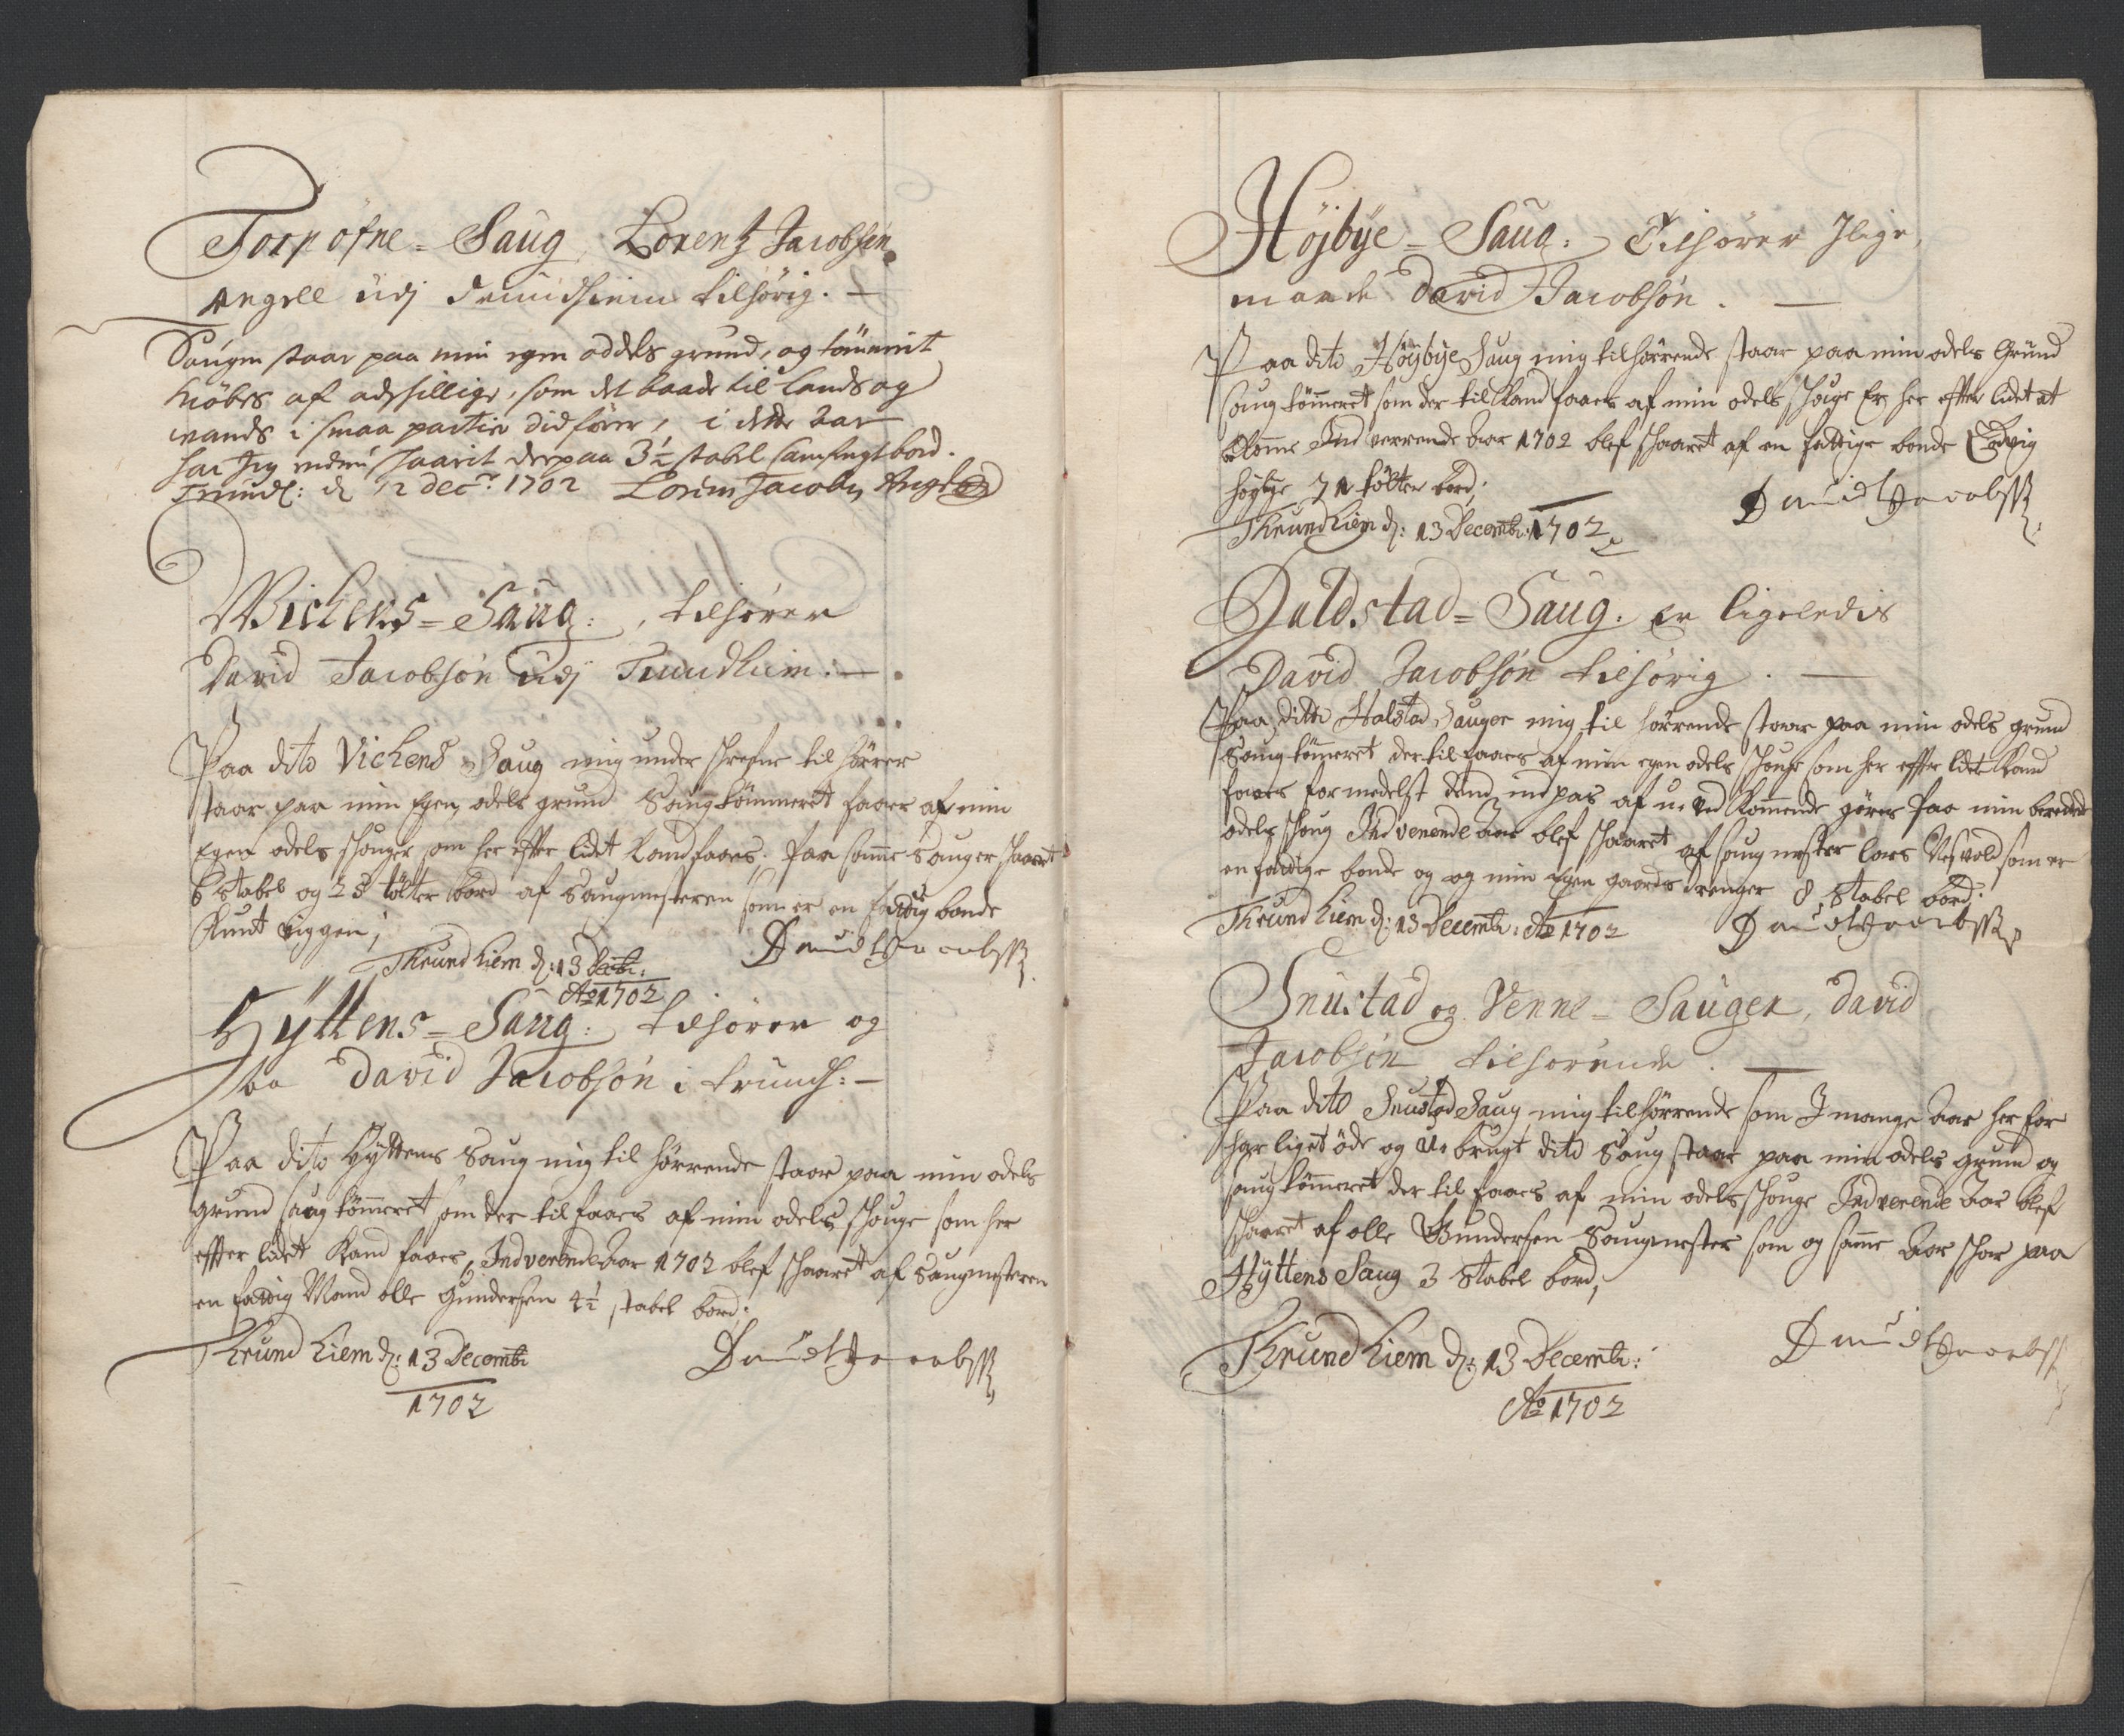 Torp øfne = Saug, Lorentz Jacobsen
Angell udj Trundhiem tilhørig. —
Saugen staar paa min egen oddels grund, og tømmerit
kiøbes af adschillige, som det baade til Lands og
wands i smaa partier didfører, i dette aar
har Jeg endnu schaarit derpaa 3½ stabel samfengt bord.
Trundh: d 12 Decr: 1702 Lorens Jacobsn Angell
Wichens = Saug: , tilhører
David Jacobsøn udj Trundhiem. —
Paa dito Vichens Saug mig under schrefne til hørrer
staar paa min Egen odels grund Saugtømmeret faaes af min
Egen odels schouger som her effter lidet kand faaes, paa samme Sauger schaaret
6 stabel og 25 tölter bord af Saugmesteren som er en fattig bonde
Knut viggen;
Thrundhiem d: 13 Decbr: David Jacobssøn
Ao 1702
Hÿttens = Saug: tilhører og
saa David Jacobsøn i Trundh: —
Paa dito Hyttens Saug mig til hørrende staar paa min odels
grund saug tømmeret som der til faaes af min odels schouge som her
effter lidet kand faaes, Indverende Aar 1702 blef schaaret af Saugmesteren
en fattig Mand olle Gundersen 4½ stabel bord;
Thrundhiem d: 13 Decembr David Jacobssøn
1702
Højbÿe = Saug: Tilhører Jlige,
maade David Jacobsøn. —
Paa dito Höÿbÿe Saug mig tilhørrende staar paa min odels Grund
saug tømmeret som der til kand faaes af min odels schouge Er her effter lidet at
komme Ind verrende Aar 1702 blef schaaret af en fattige bonde
höybye 71 tölter bord;
Thrundhiem d: 13 Decembr: 1702 David Jacobssøn
Haldstad = Saug. er ligeledis
David Jacobsøn tilhørig. —
Paa ditto Halstad Sauger mig til hørrende staar paa min odels grund
Saug tømmeret der til faaes af min egen odels schouge som her effter lidet kand
faaes formedelst dend ind pas af u-ved kommende gøres paa min
odels schoug Ind verende Aar blef schaaret af saug mester lars som er
en fattige bonde og og min egen gaards drenger 8 stabel bord;
Thrundhiem d: 13 Decembr: Ao 1702 David Jacobssøn
Snustad og Venne = Sauger, David
Jacobsøn tilhørende. —
Paa dito Snustad Saug mig tilhørrende som J mange Aar her for
har liget öde og u-brugt dito Saug staar paa min odels grund og
saug tømmeret der til faaes af min odels schouge Ind verende Aar blef
schaaret af olle Gundersen Saugmester som og samme Aar schar paa
Hÿttens Saug 3 stabel bord;
Thrundhiem d: 13 Decembr: David Jacobssøn
Ao 1702